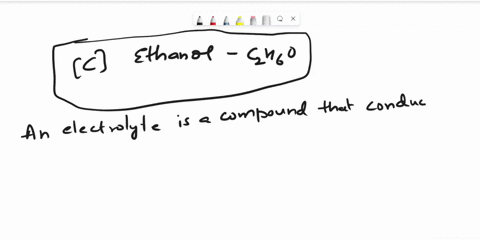 [C] Ethanol - C₂H₆O
An electrolyte is a compound that conduc